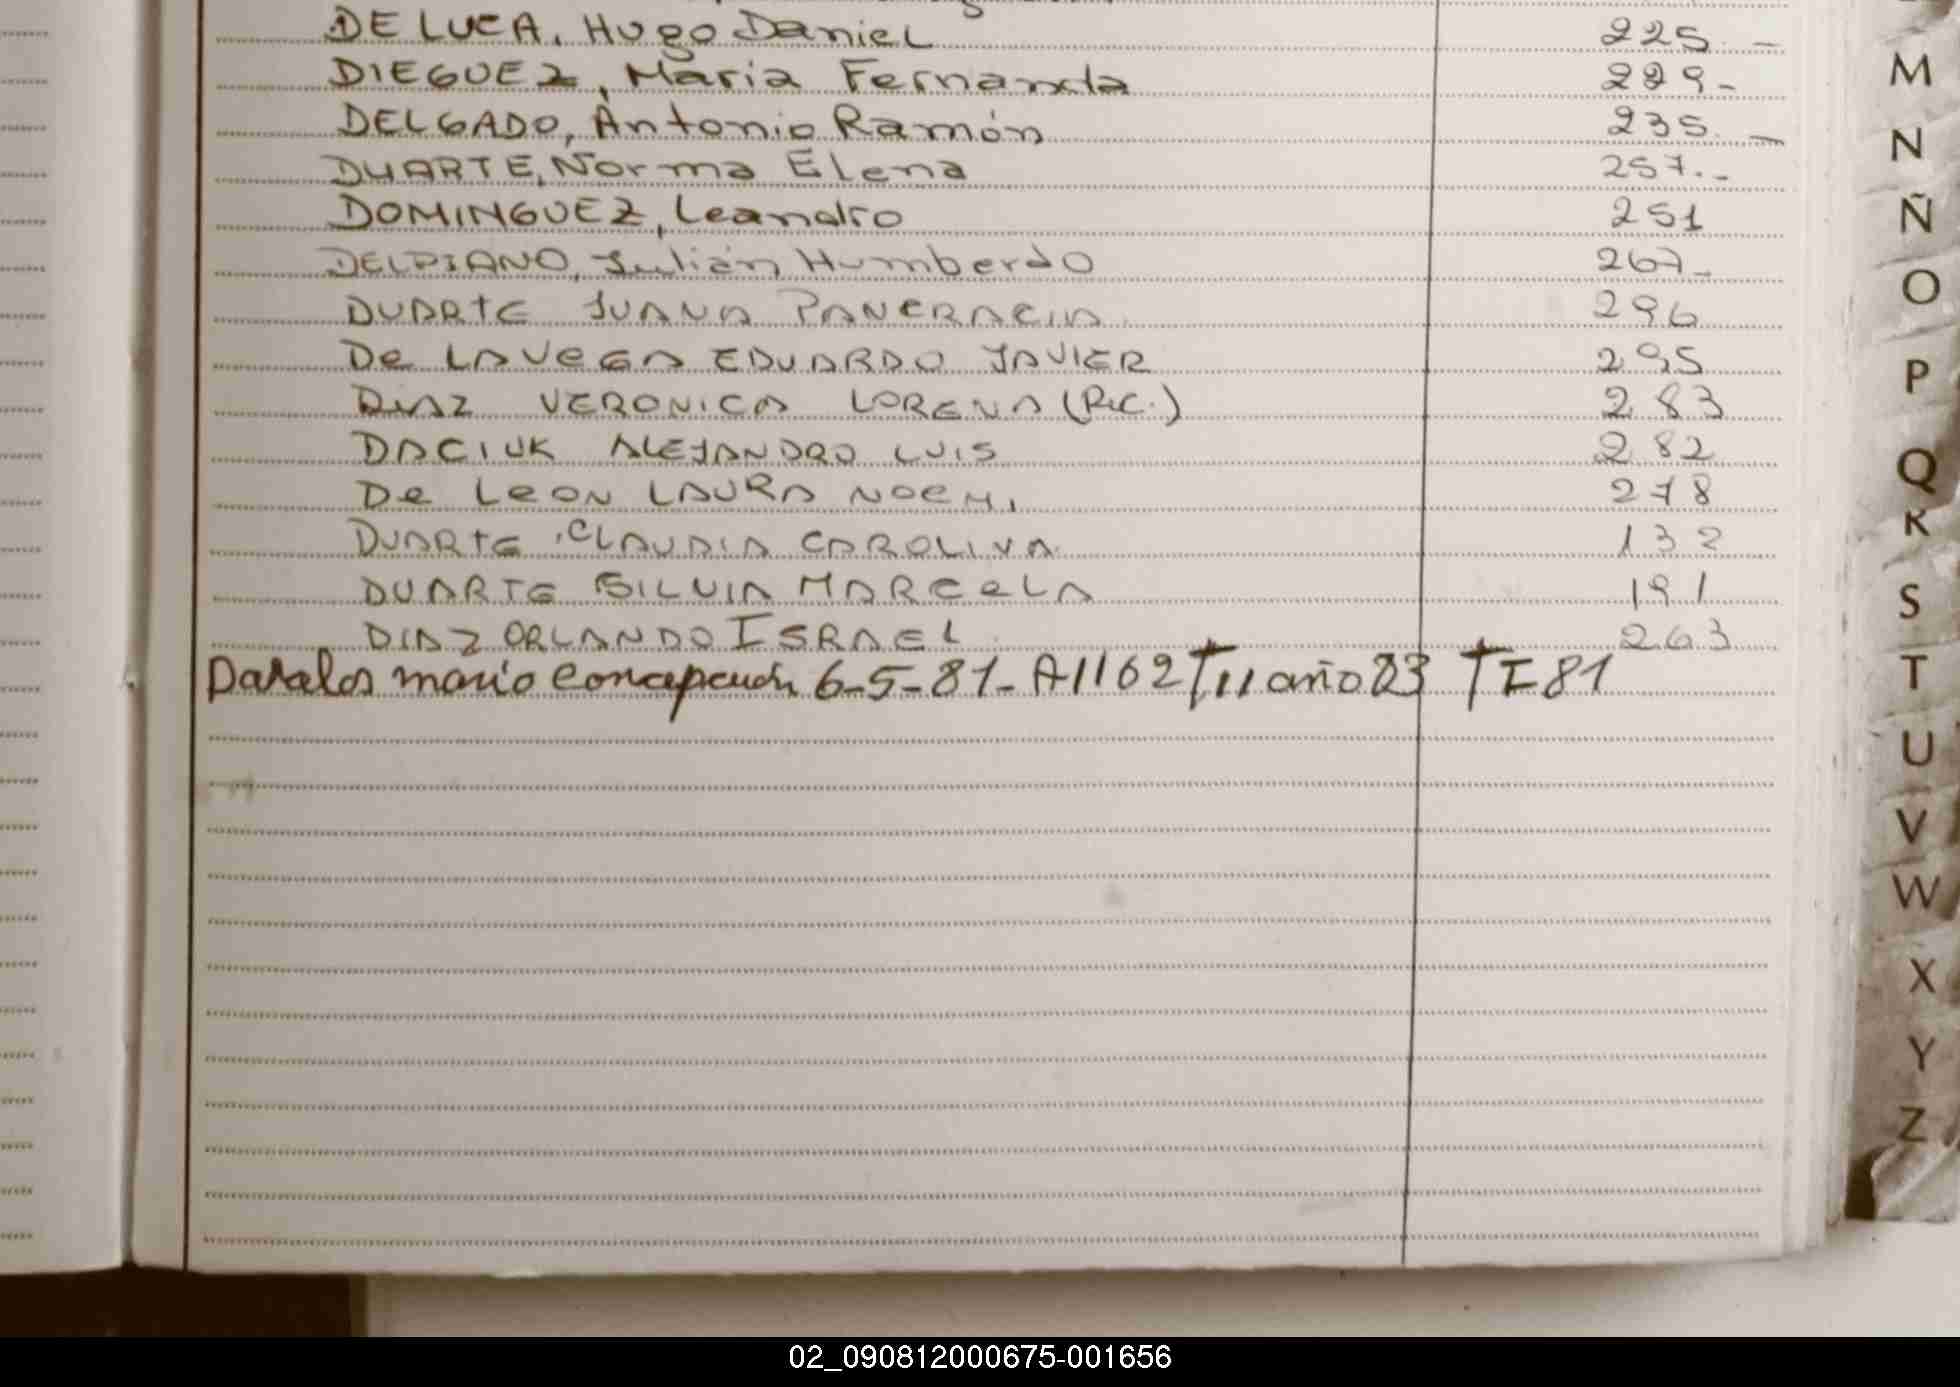 DE LUCA, Hugo Daniel 225.-
DIEGUEZ, Maria Fernanda 229-
DELGADO, Antonio Ramón 235.-
DUARTE, Norma Elena 257.-
DOMINGUEZ, Leandro 251
DELPIANO, Julián Humberdo 267-
DUARTE JUANA PANCRACIA 296
De LA VEGA EDUARDO JAVIER 295
DIAZ VERONICA LORENA (Rec.) 283
DACIUK ALEJANDRO LUIS 282
De LEON LAURA NOEMI 278
DUARTE CLAUDIA CAROLINA 132
DUARTE SILVIA MARCELA 191
DIAZ ORLANDO ISRAEL 263
Davalos mario Concepción 6-5-81- A1162 T II año 83 T I 81
M
N
Ñ
O
P
Q
R
S
T
U
V
W
X
Y
Z
02_090812000675-001656